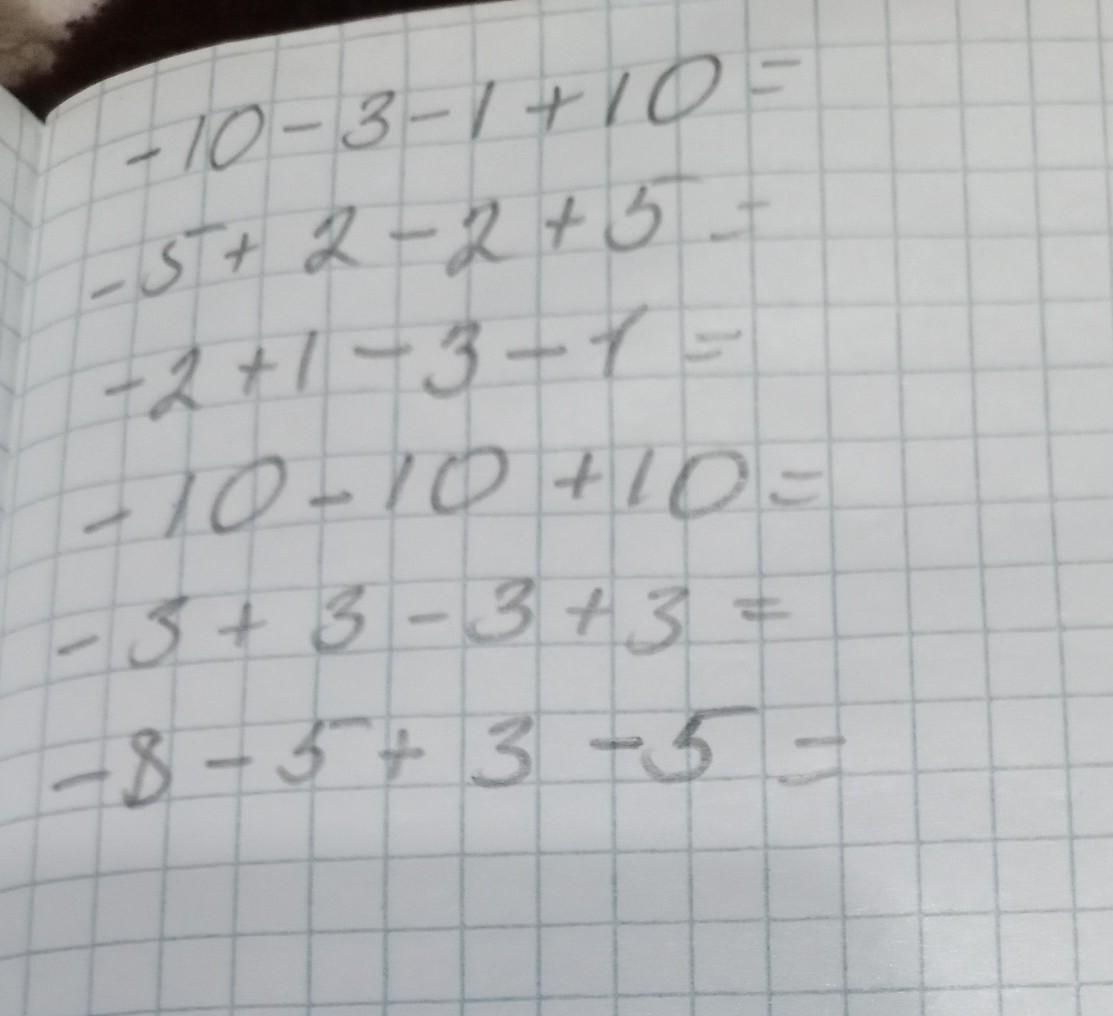 -10-3-1+10=
-5+2-2+5=
-2+1-3-1=
-10-10+10=
-3+3-3+3=
-8-5+3-5=